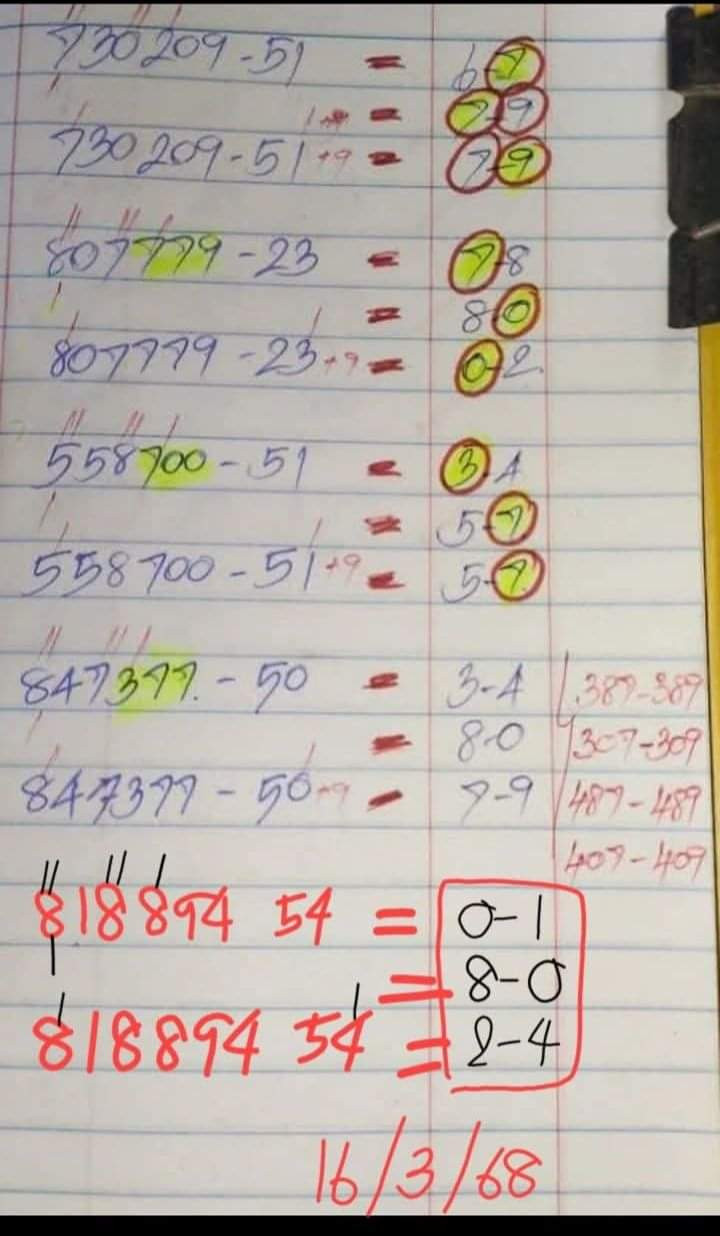 730209-51 = 6-7
1+9 = 7-9
730209-51+9 = 7-9
807779-23 = 7-8
= 8-0
807779-23+9 = 0-2
558700-51 = 3-4
= 5-7
558700-51+9 = 5-7
847377-50 = 3-4 387-389
= 8-0 307-309
847377-50+9 = 7-9 487-489
407-409
818894 54 = 0-1
= 8-0
818894 54 = 2-4
16/3/68